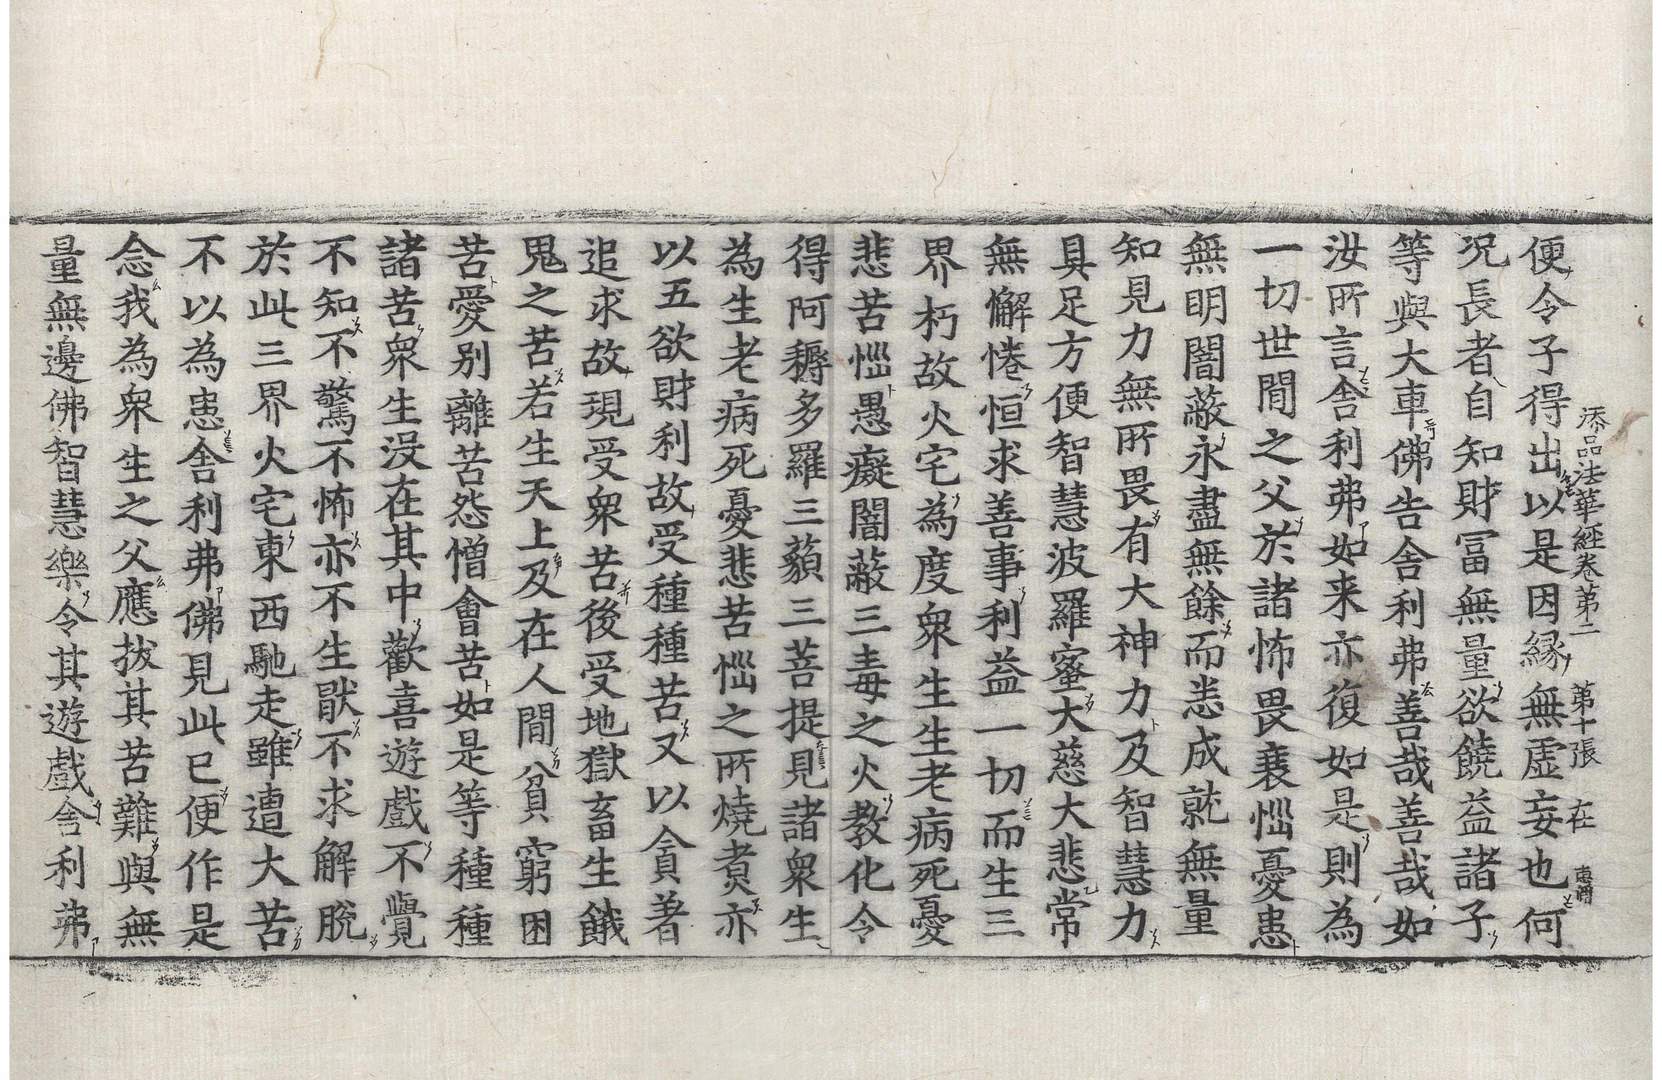 添品法華經卷第二 第十張 在
便令子得出以是因緣無虛妄也何
况長者自知財冨無量欲饒益諸子
等與大車佛告舍利弗善哉善哉如
汝所言舍利弗如来亦復如是則為
一切世間之父於諸怖畏衰惱憂患
無明闇蔽永盡無餘而悉成就無量
知見力無所畏有大神力及智慧力
具足方便智慧波羅蜜大慈大悲常
無懈惓恒求善事利益一切而生三
界朽故火宅為度衆生生老病死憂
悲苦惱愚癡闇蔽三毒之火教化令
得阿耨多羅三藐三菩提見諸衆生
為生老病死憂悲苦惱之所燒煑亦
以五欲財利故受種種苦又以貪著
追求故現受衆苦後受地獄畜生餓
鬼之苦若生天上及在人間貧窮困
苦愛別離苦怨憎會苦如是等種種
諸苦衆生没在其中歡喜遊戲不覺
不知不驚不怖亦不生猒不求解脫
於此三界火宅東西馳走雖遭大苦
不以為患舍利弗佛見此已便作是
念我為衆生之父應拔其苦難與無
量無邊佛智慧樂令其遊戲舍利弗